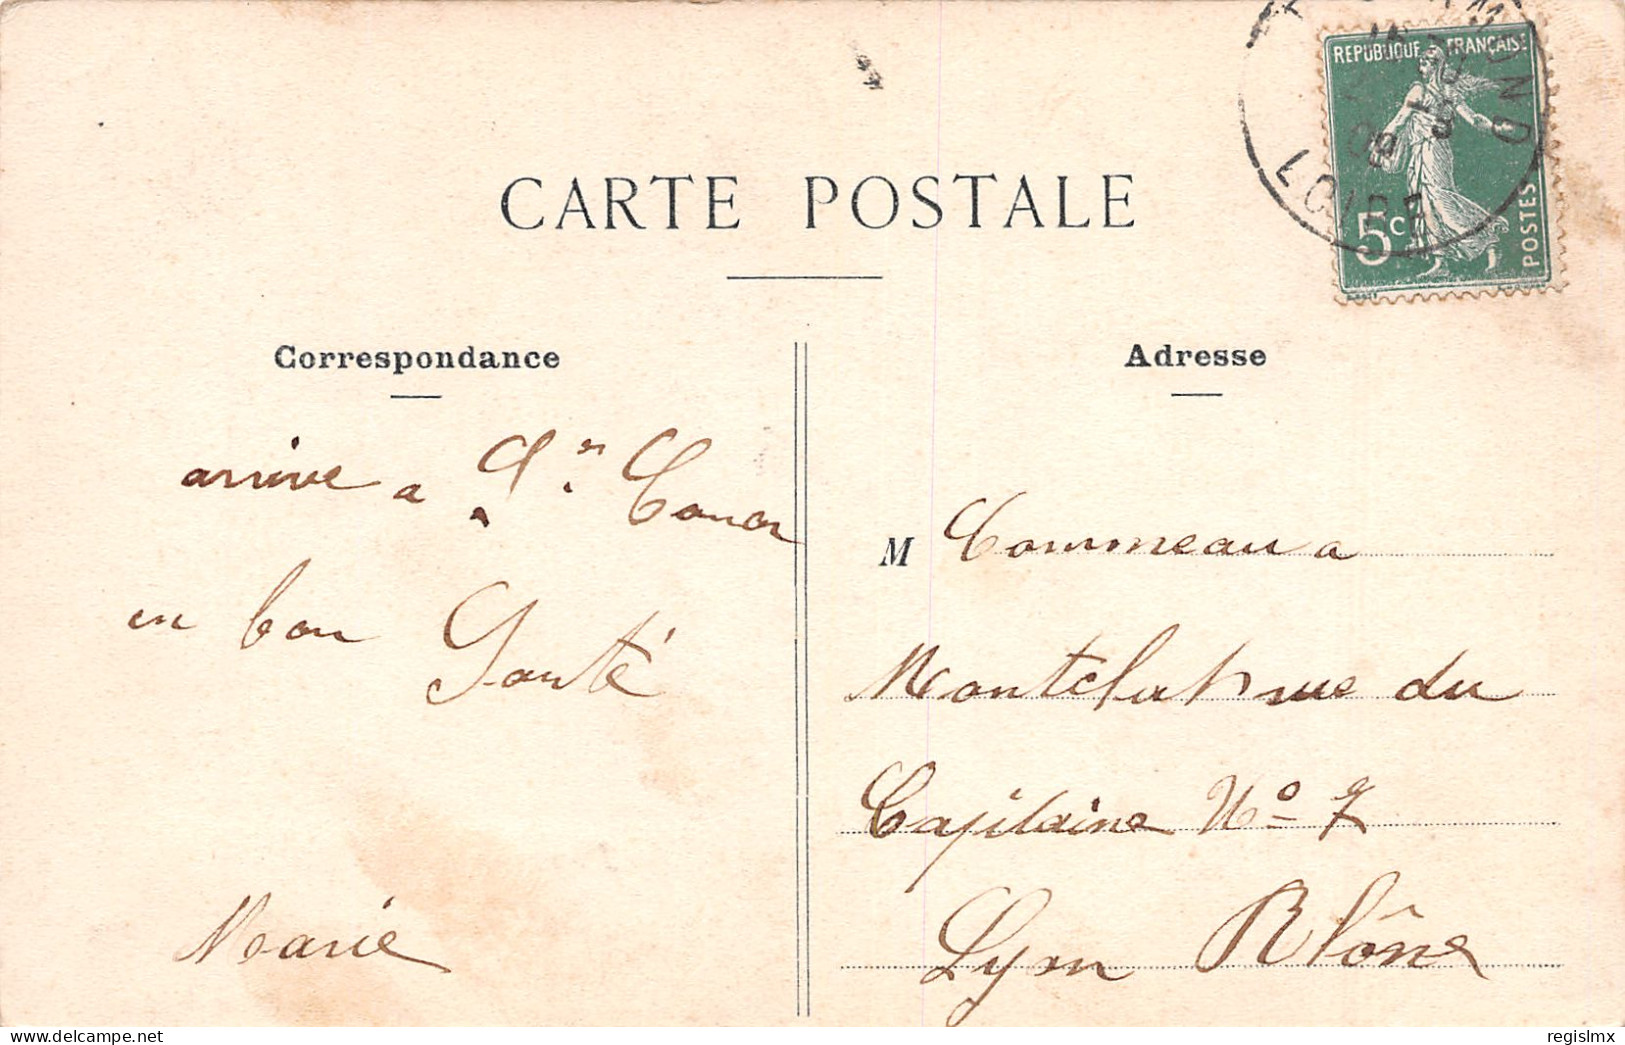 CARTE POSTALE
REPUBLIQUE FRANÇAISE
5c
POSTES
LOIRE
Correspondance
arrive a
en bon Santé
Marie
Adresse
M Commeau a
rue du
Capitaine No 7
Lyon Rhône
delcampe.net
regislmx